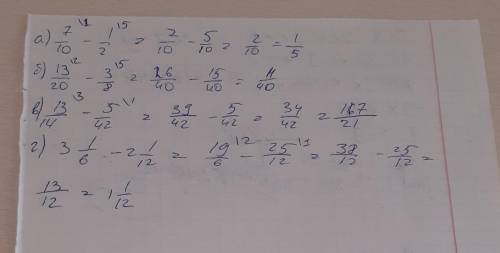 а) 7/10 \1 - 1/2 \5 = 7/10 - 5/10 = 2/10 = 1/5
б) 13/20 \2 - 3/8 \5 = 26/40 - 15/40 = 11/40
в) 13/14 \3 - 5/42 \1 = 39/42 - 5/42 = 34/42 = 167/21
г) 3 1/6 - 2 1/12 = 19/6 \2 - 25/12 \1 = 38/12 - 25/12 =
13/12 = 1 1/12